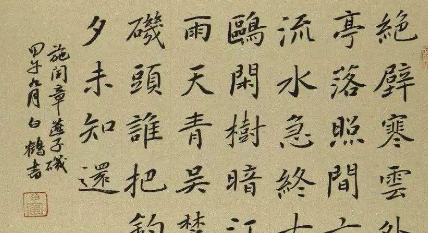 絕壁寒雲外
亭落照間
流水急終
鷗閑樹暗江
雨天青吳楚
磯頭誰把釣
夕未知還
施閏章燕子磯
甲午九月白鶴書